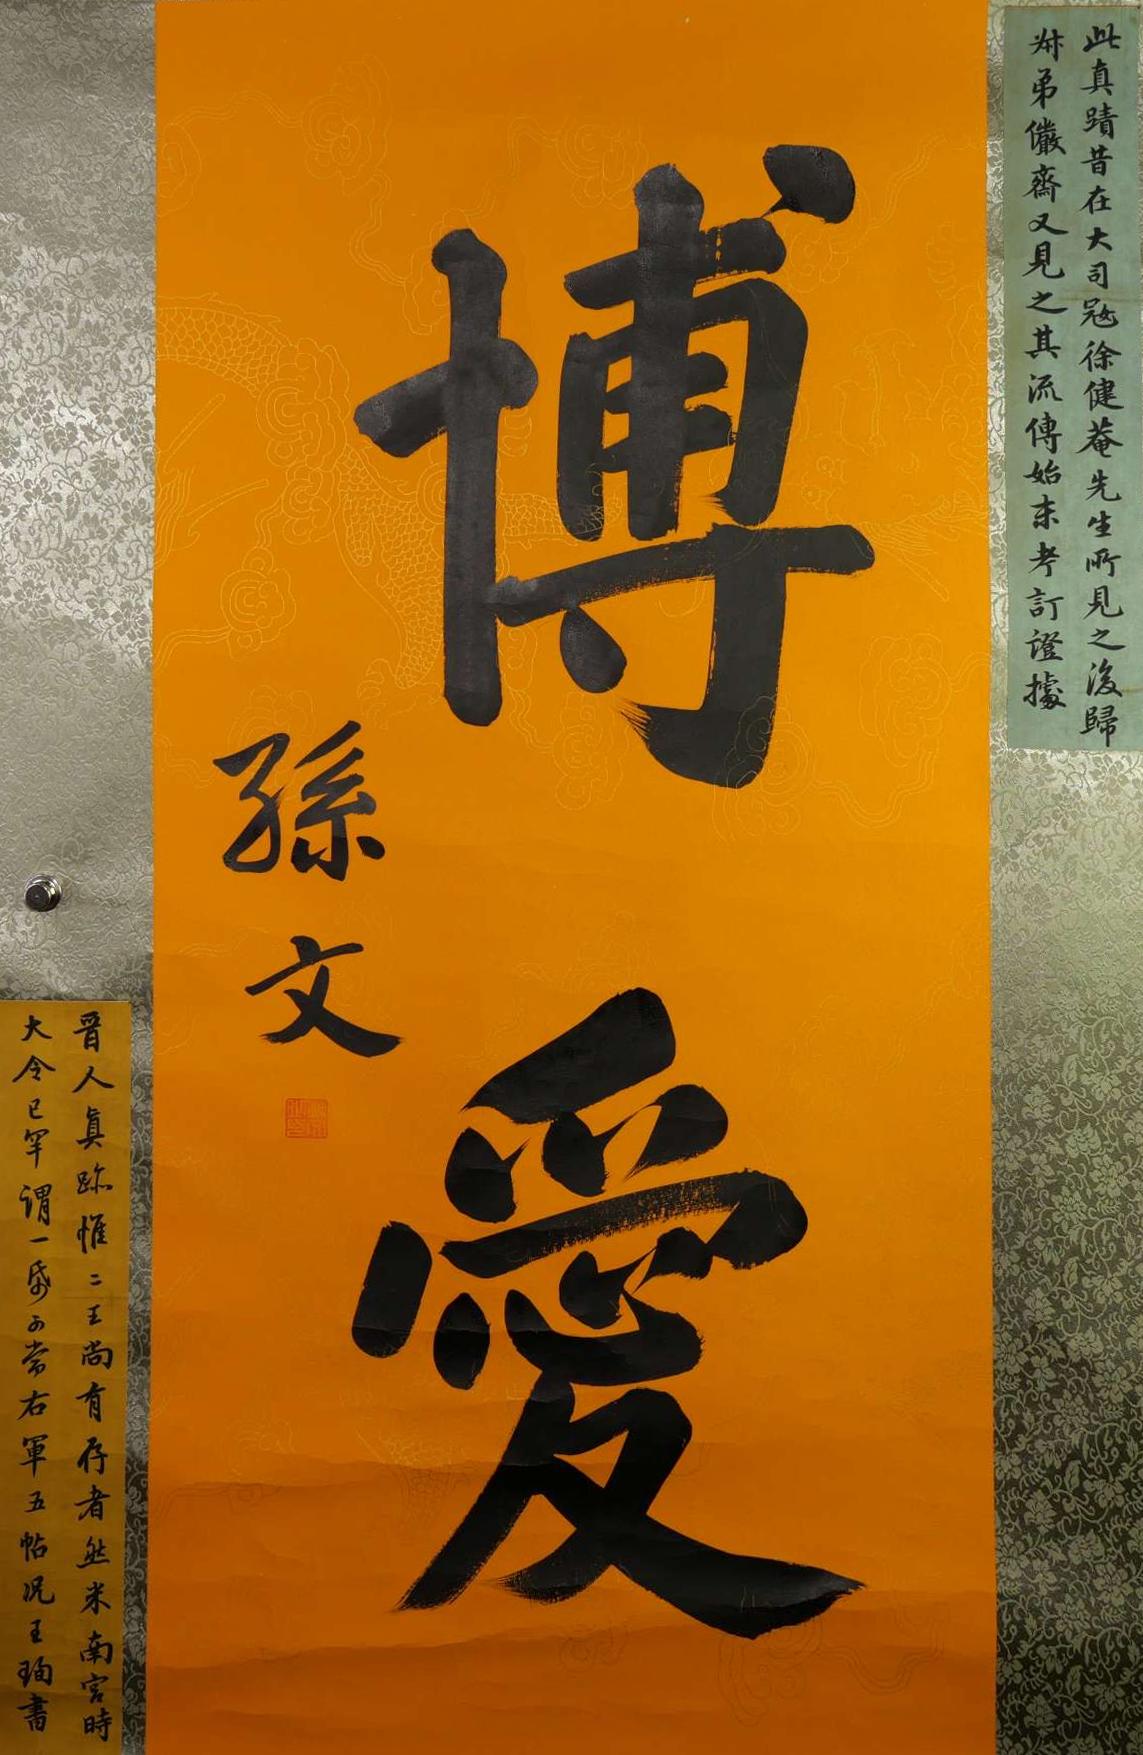 此真蹟昔在大司寇徐健菴先生所見之後歸
弟儼齋又見之其流傳始末考訂證據
博愛
孫文
晉人真跡惟二王尚有存者然米南宮時
大令已罕謂一紙可當右軍五帖況王珣書